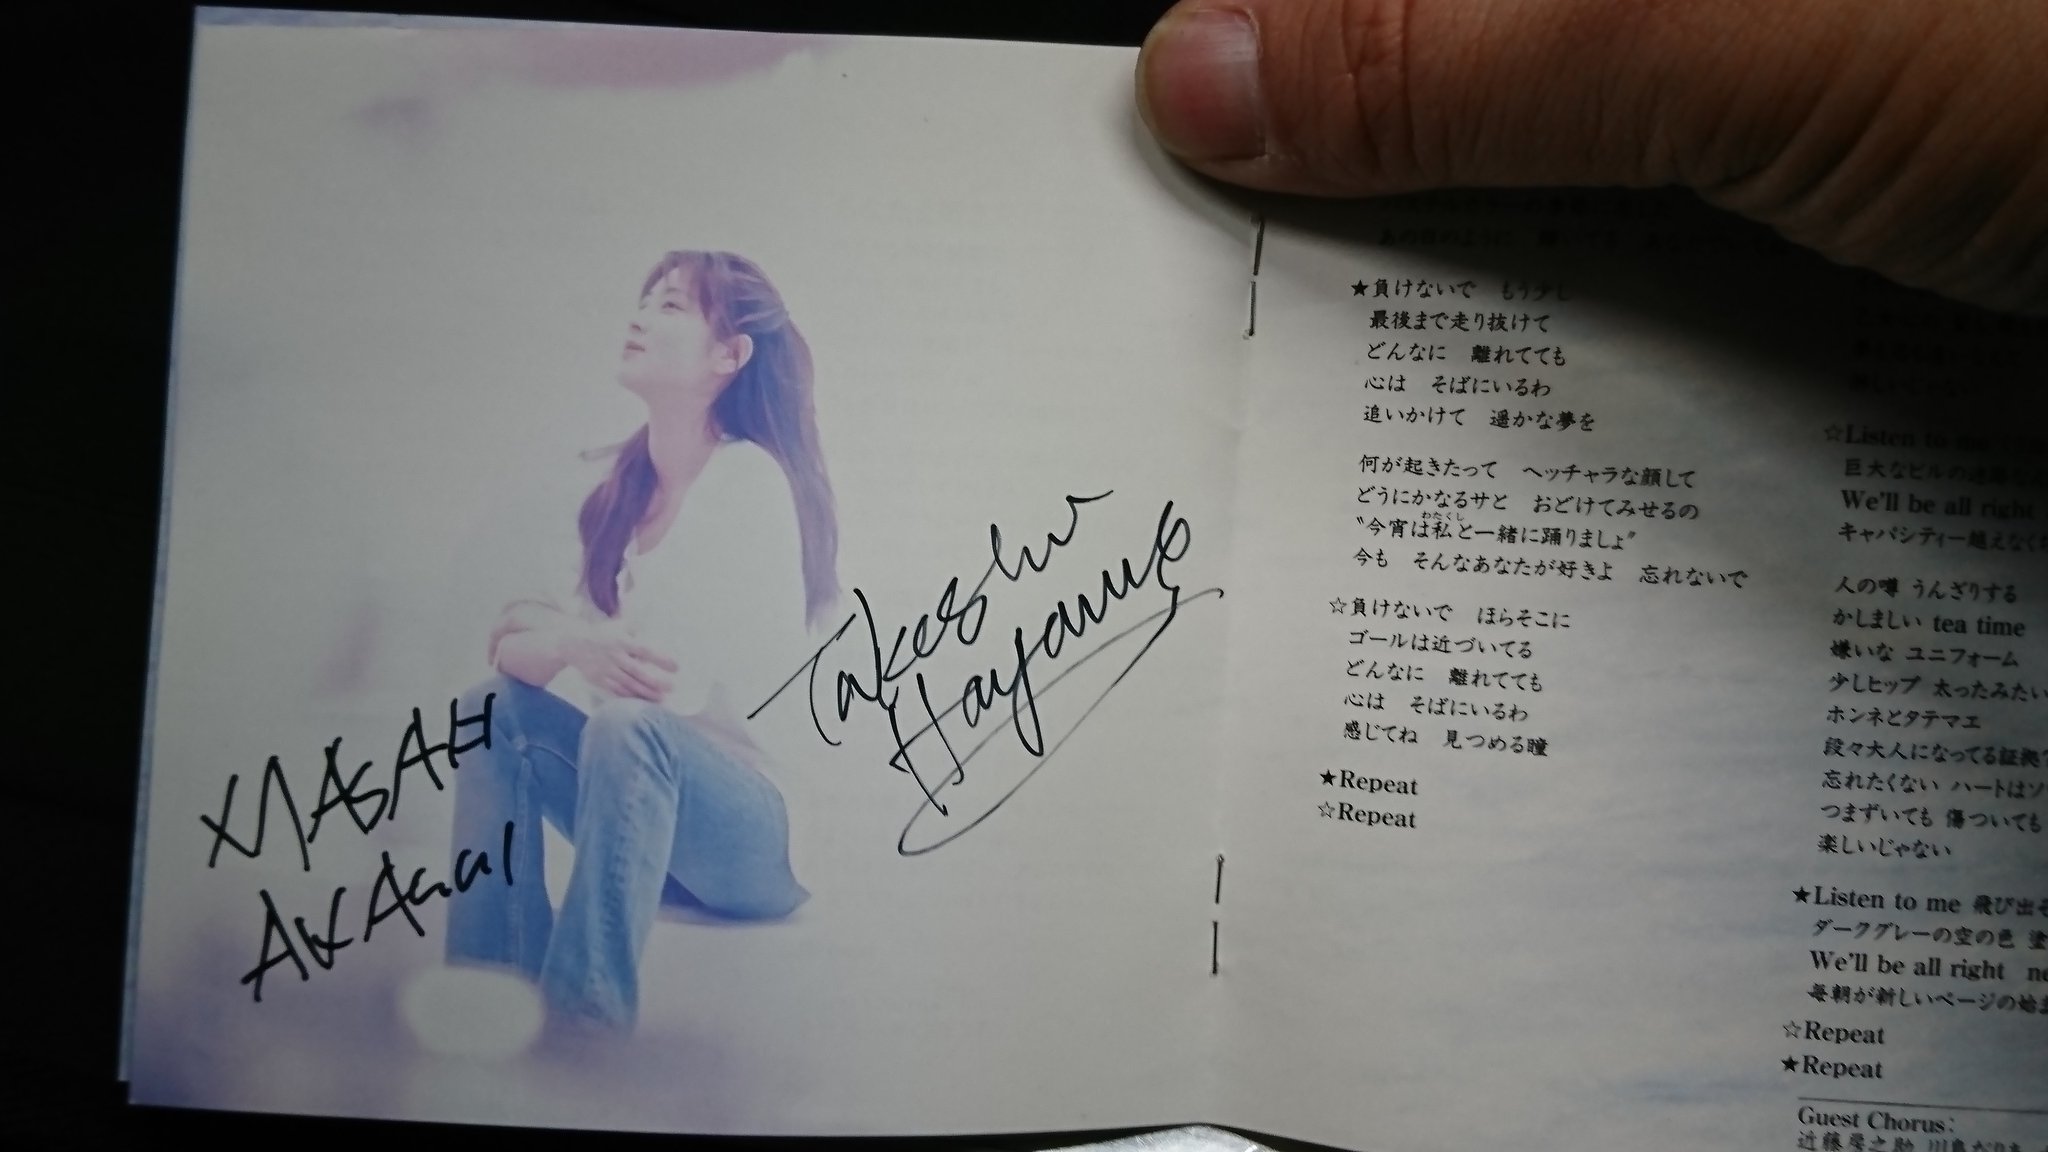 MASAKI
AKAGUI
Takeshi
Hayama
★負けないで もう少し
最後まで走り抜けて
どんなに 離れてても
心は そばにいるわ
追いかけて 遥かな夢を
何が起きたって ヘッチャラな顔して
どうにかなるサと おどけてみせるの
わたくし
“今宵は私と一緒に踊りましょ”
今も そんなあなたが好きよ 忘れないで
☆負けないで ほらそこに
ゴールは近づいてる
どんなに 離れてても
心は そばにいるわ
感じてね 見つめる瞳
★Repeat
☆Repeat
☆Listen to me
巨大なビルの
We'll be all right
キャパシティー越えなくちゃ
人の噂 うんざりする
かしましい tea time
嫌いな ユニフォーム
少しヒップ 太ったみたい
ホンネとタテマエ
段々大人になってる証拠?
忘れたくない ハートはソ
つまずいても 傷ついても
楽しいじゃない
★Listen to me 飛び出そ
ダークグレーの空の色 塗
We'll be all right ne
毎朝が新しいページの始ま
☆Repeat
★Repeat
Guest Chorus:
近藤房之助